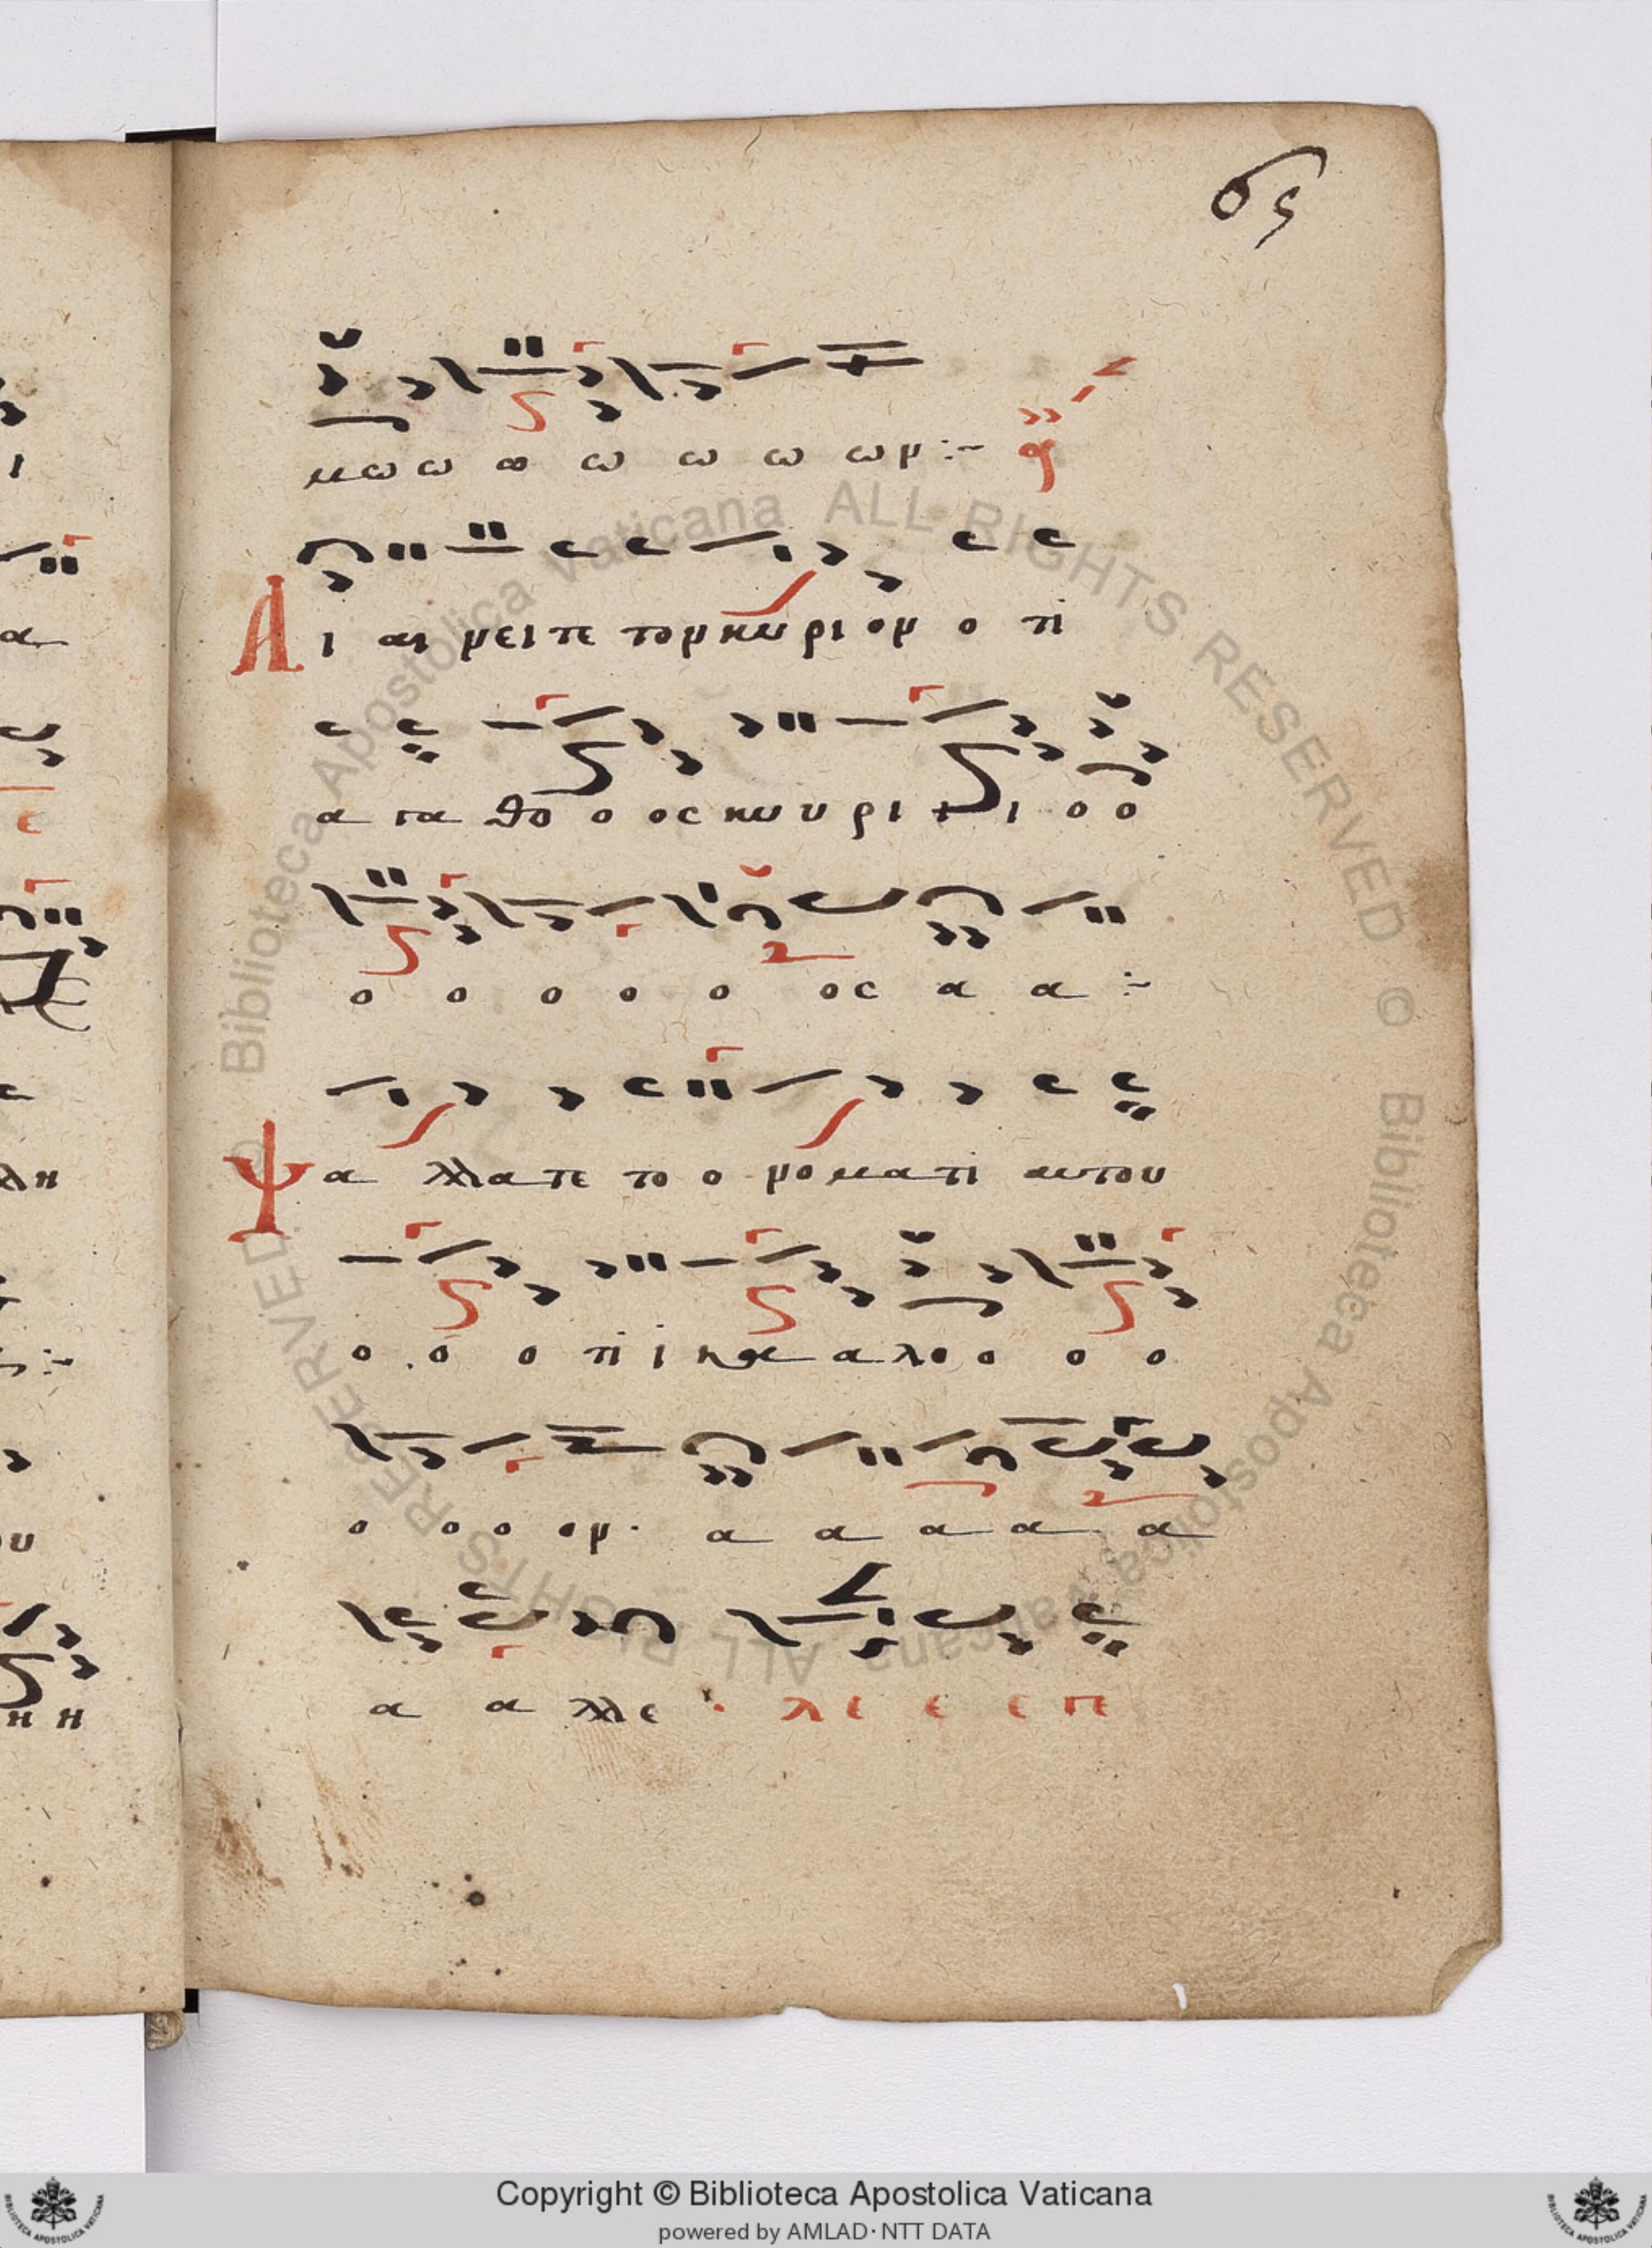 65
μωω ω ω ω ω ωμ :~
Αι αι νει τε τον κυ ρι ον ο τι
α γα θο ο ος κυ υ ρι ι ι ο ο
ο ο ο ο ο ος α α :~
Ψα λλατε το ο νο ματι αυτου
ο ο ο τι ι κα α λο ο ο ο
ο ο ο ον· α α α α α
α α λλε · λε ε ε π
Biblioteca Apostolica Vaticana ALL RIGHTS RESERVED ©
Biblioteca Apostolica Vaticana ALL RIGHTS RESERVED ©
Copyright © Biblioteca Apostolica Vaticana
powered by AMLAD·NTT DATA